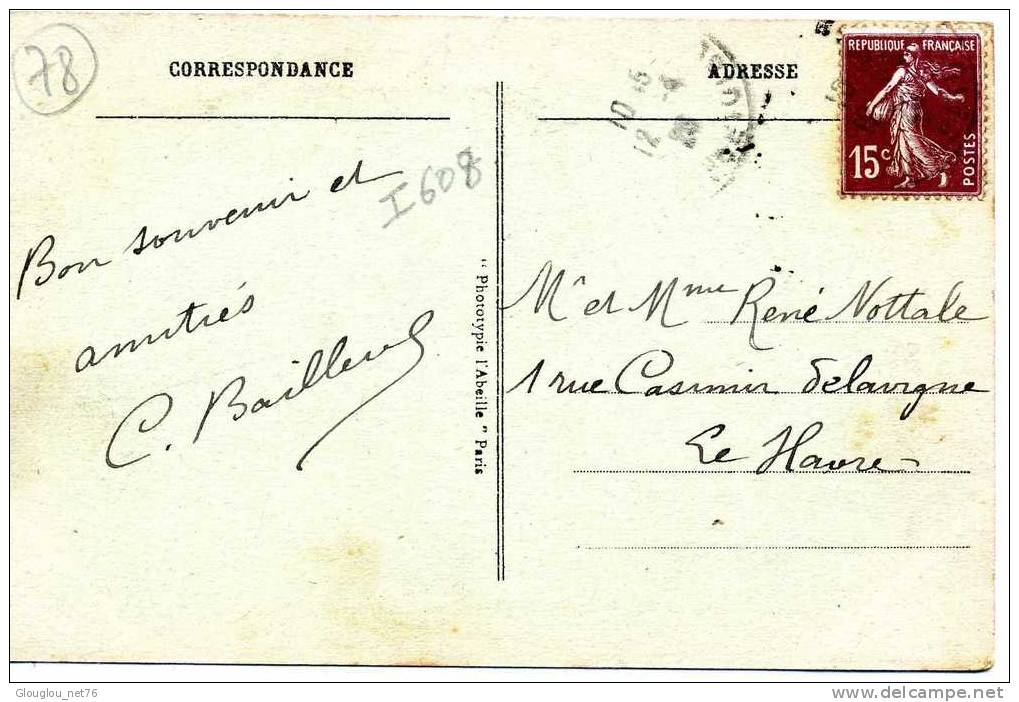 78
CORRESPONDANCE
ADRESSE
RÉPUBLIQUE FRANÇAISE
15c
POSTES
10 45
12 - 4
I608
Bon souvenir et
amitiés
C.
"Phototypie l'Abeille" Paris
Mr et Mme René Nottale
1 rue Casimir Delavigne
Le Havre
Glouglou_net76
delcampe.net